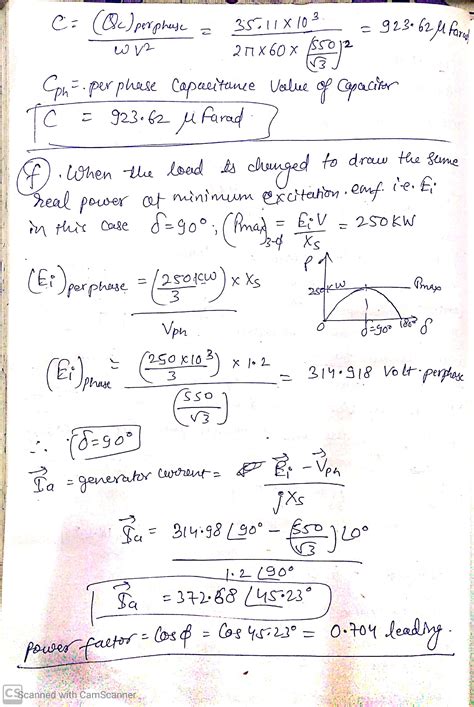 C = (Qc)perphase / ωV² = 35.11×10³ / 2π×60×(550/√3)² = 923.62 μ Farad
Cph = per phase Capacitance Value of Capacitor
C = 923.62 μ Farad
(f). When the load is changed to draw the same
real power at minimum excitation emf i.e. Ei
in this case δ=90°, (Pmax)3-ϕ = EiV / Xs = 250KW
(Ei)perphase = (250KW / 3) × Xs / Vph
P
250KW
Pmax
0
δ=90°
180°
δ
(Ei)phase = (250×10³ / 3) × 1.2 / (550 / √3) = 314.918 Volt. perphase
∴ δ=90°
Ia = generator current = Ei − Vph / jXs
Ia = 314.98 ∠90° − (550 / √3) ∠0° / 1.2 ∠90°
Ia = 372.68 ∠45.23°
power factor = Cosϕ = Cos 45.23° = 0.704 leading.
CS Scanned with CamScanner